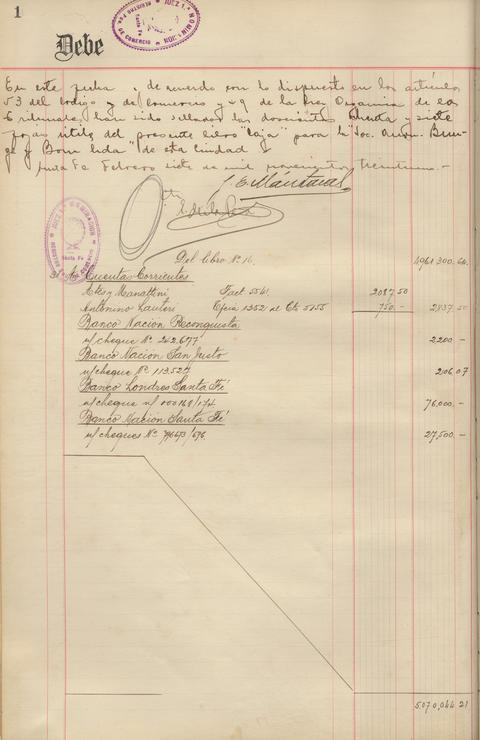 1
Debe
JUEZ 1ª NOMINACION
Santa Fe
DE COMERCIO
En esta fecha y de acuerdo con lo dispuesto en los artículos
53 del Código de Comercio y 49 de la Ley Organica de los
Tribunales, han sido sellados los doscientos ochenta y siete
fojas útiles del presente libro "Caja" para la Soc. Anon. Bun-
ge y Born Ltda" de esta ciudad
Santa Fe Febrero siete de mil novecientos treintiuno.-
JUEZ 1ª NOMINACION
Santa Fe
DE COMERCIO
Del libro Nº 16. 4961.300.64.
31 Cuentas Corrientes
Ates y Manattini Fact 5541. 2087.50
Antonino Lauteri Efvo 1352 al Cte 5155 750.- 2837.50
Banco Nacion Reconquista
n/cheque Nº 262.677 2200.-
Banco Nacion San Justo
n/cheque Nº 113.527 206.07
Banco Londres Santa Fé
n/cheque nº 000168/174 76,000.-
Banco Nacion Santa Fé
n/cheques Nº 676 27,500.-
5070,044 21